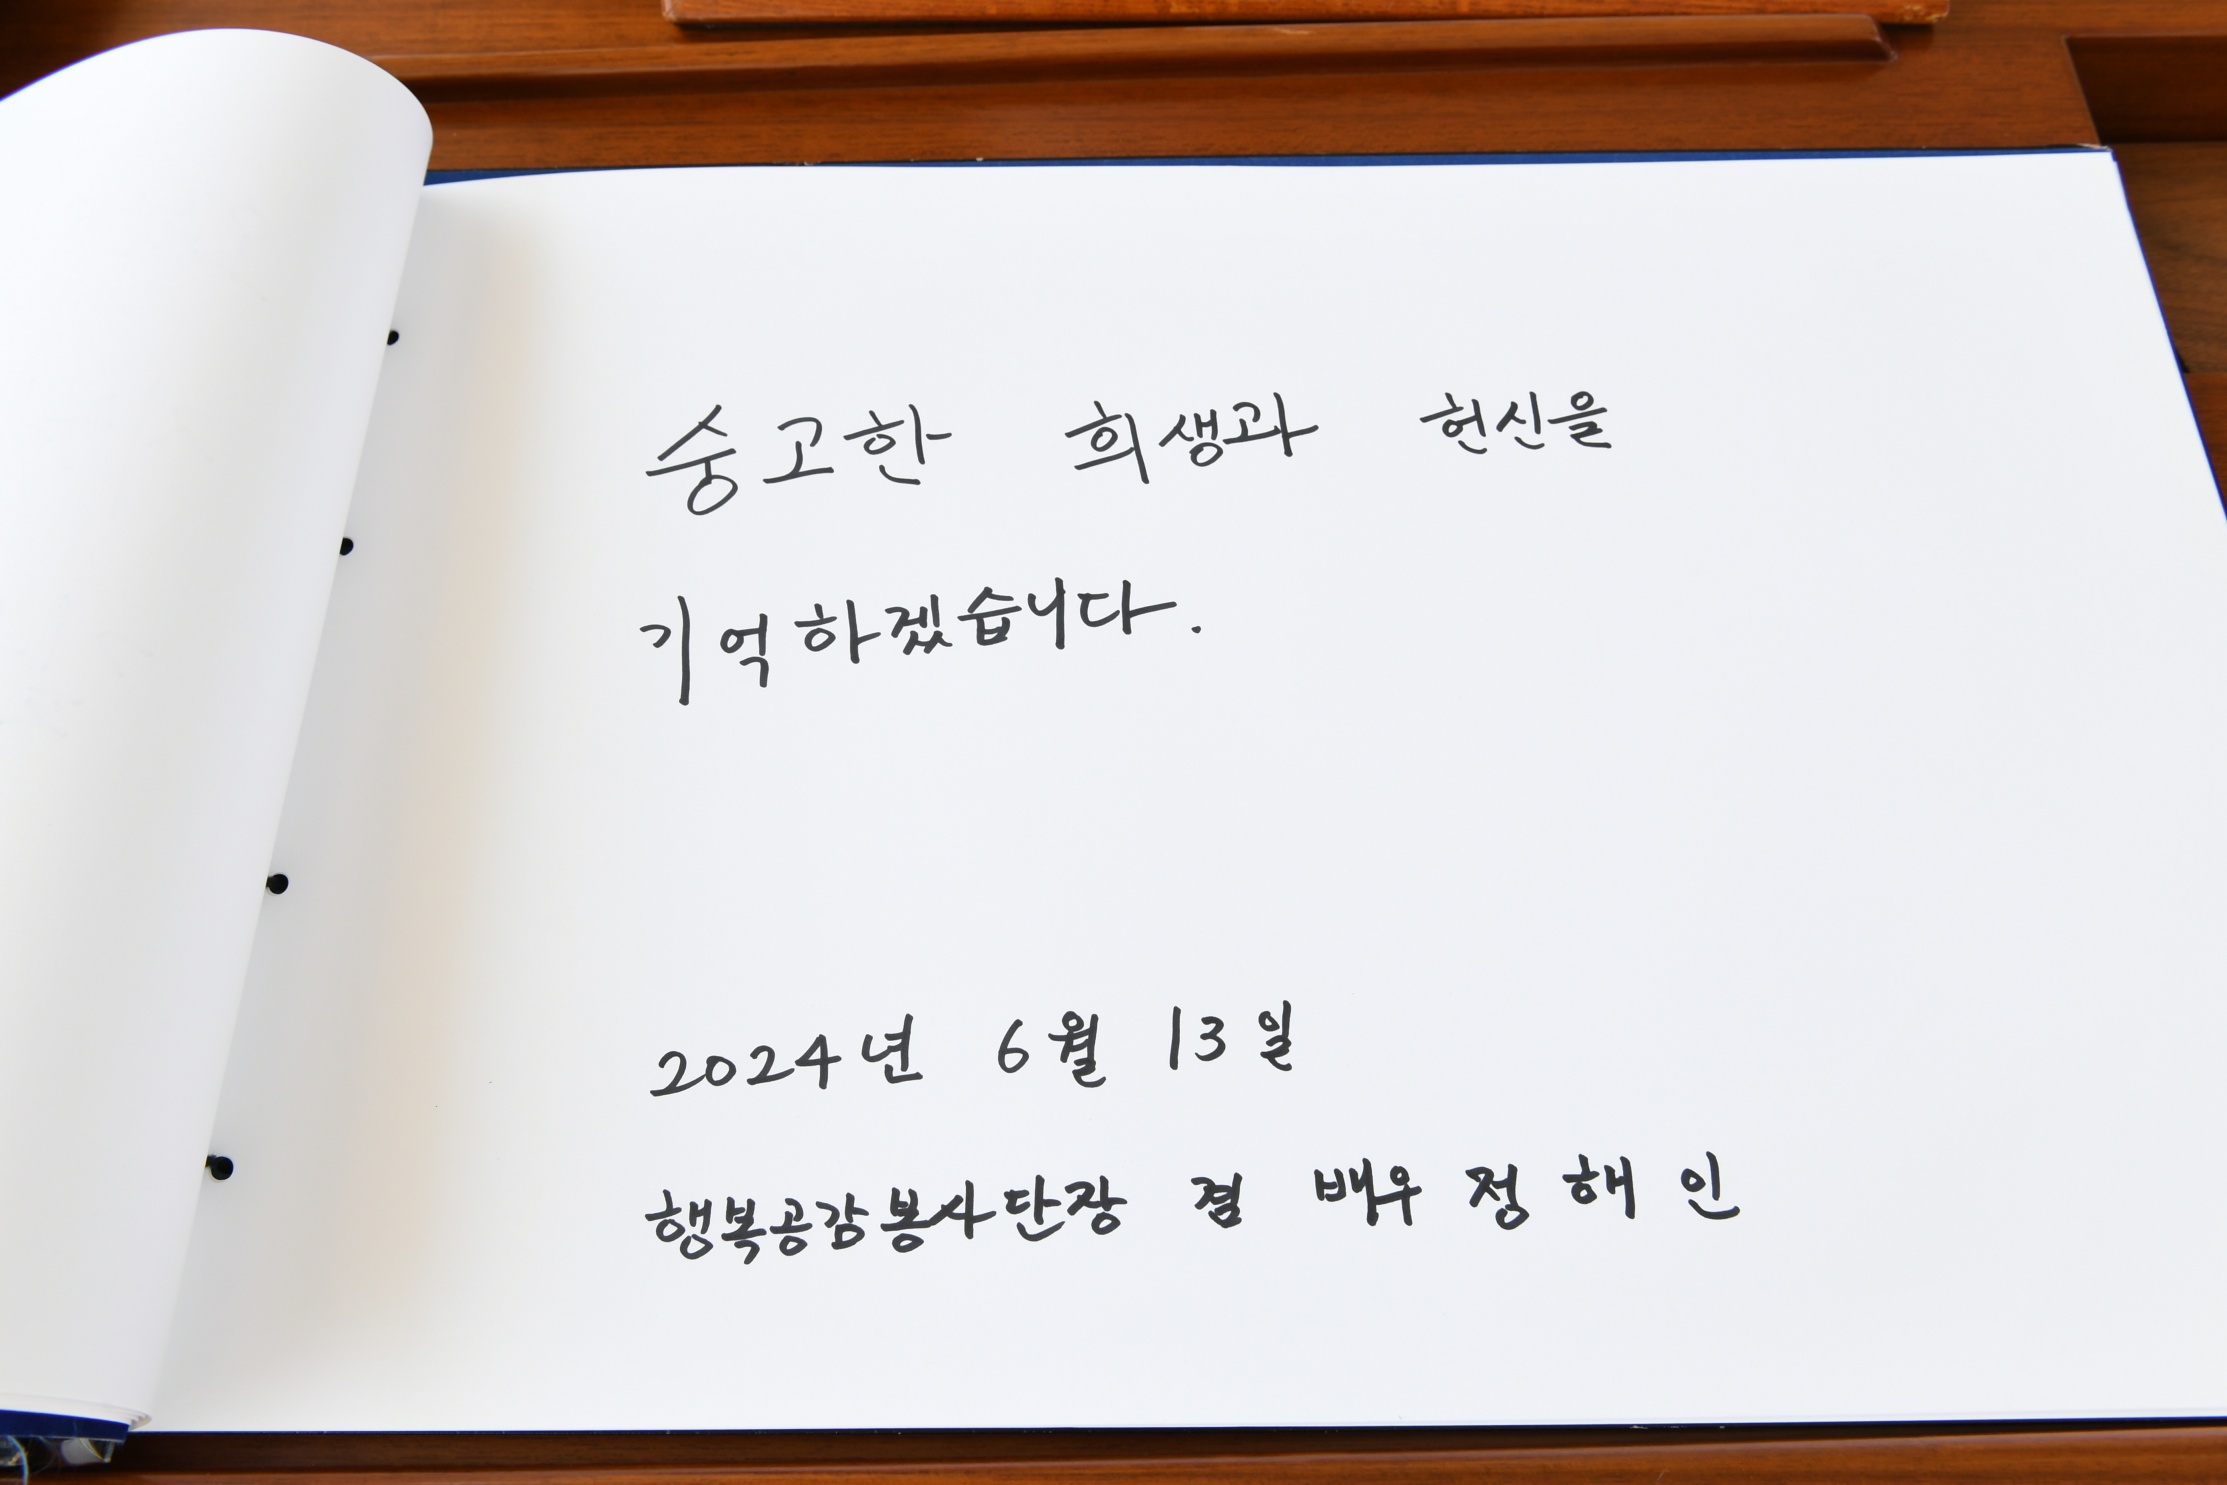 숭고한 희생과 헌신을
기억하겠습니다.
2024년 6월 13일
행복공감봉사단장 겸 배우 정해인